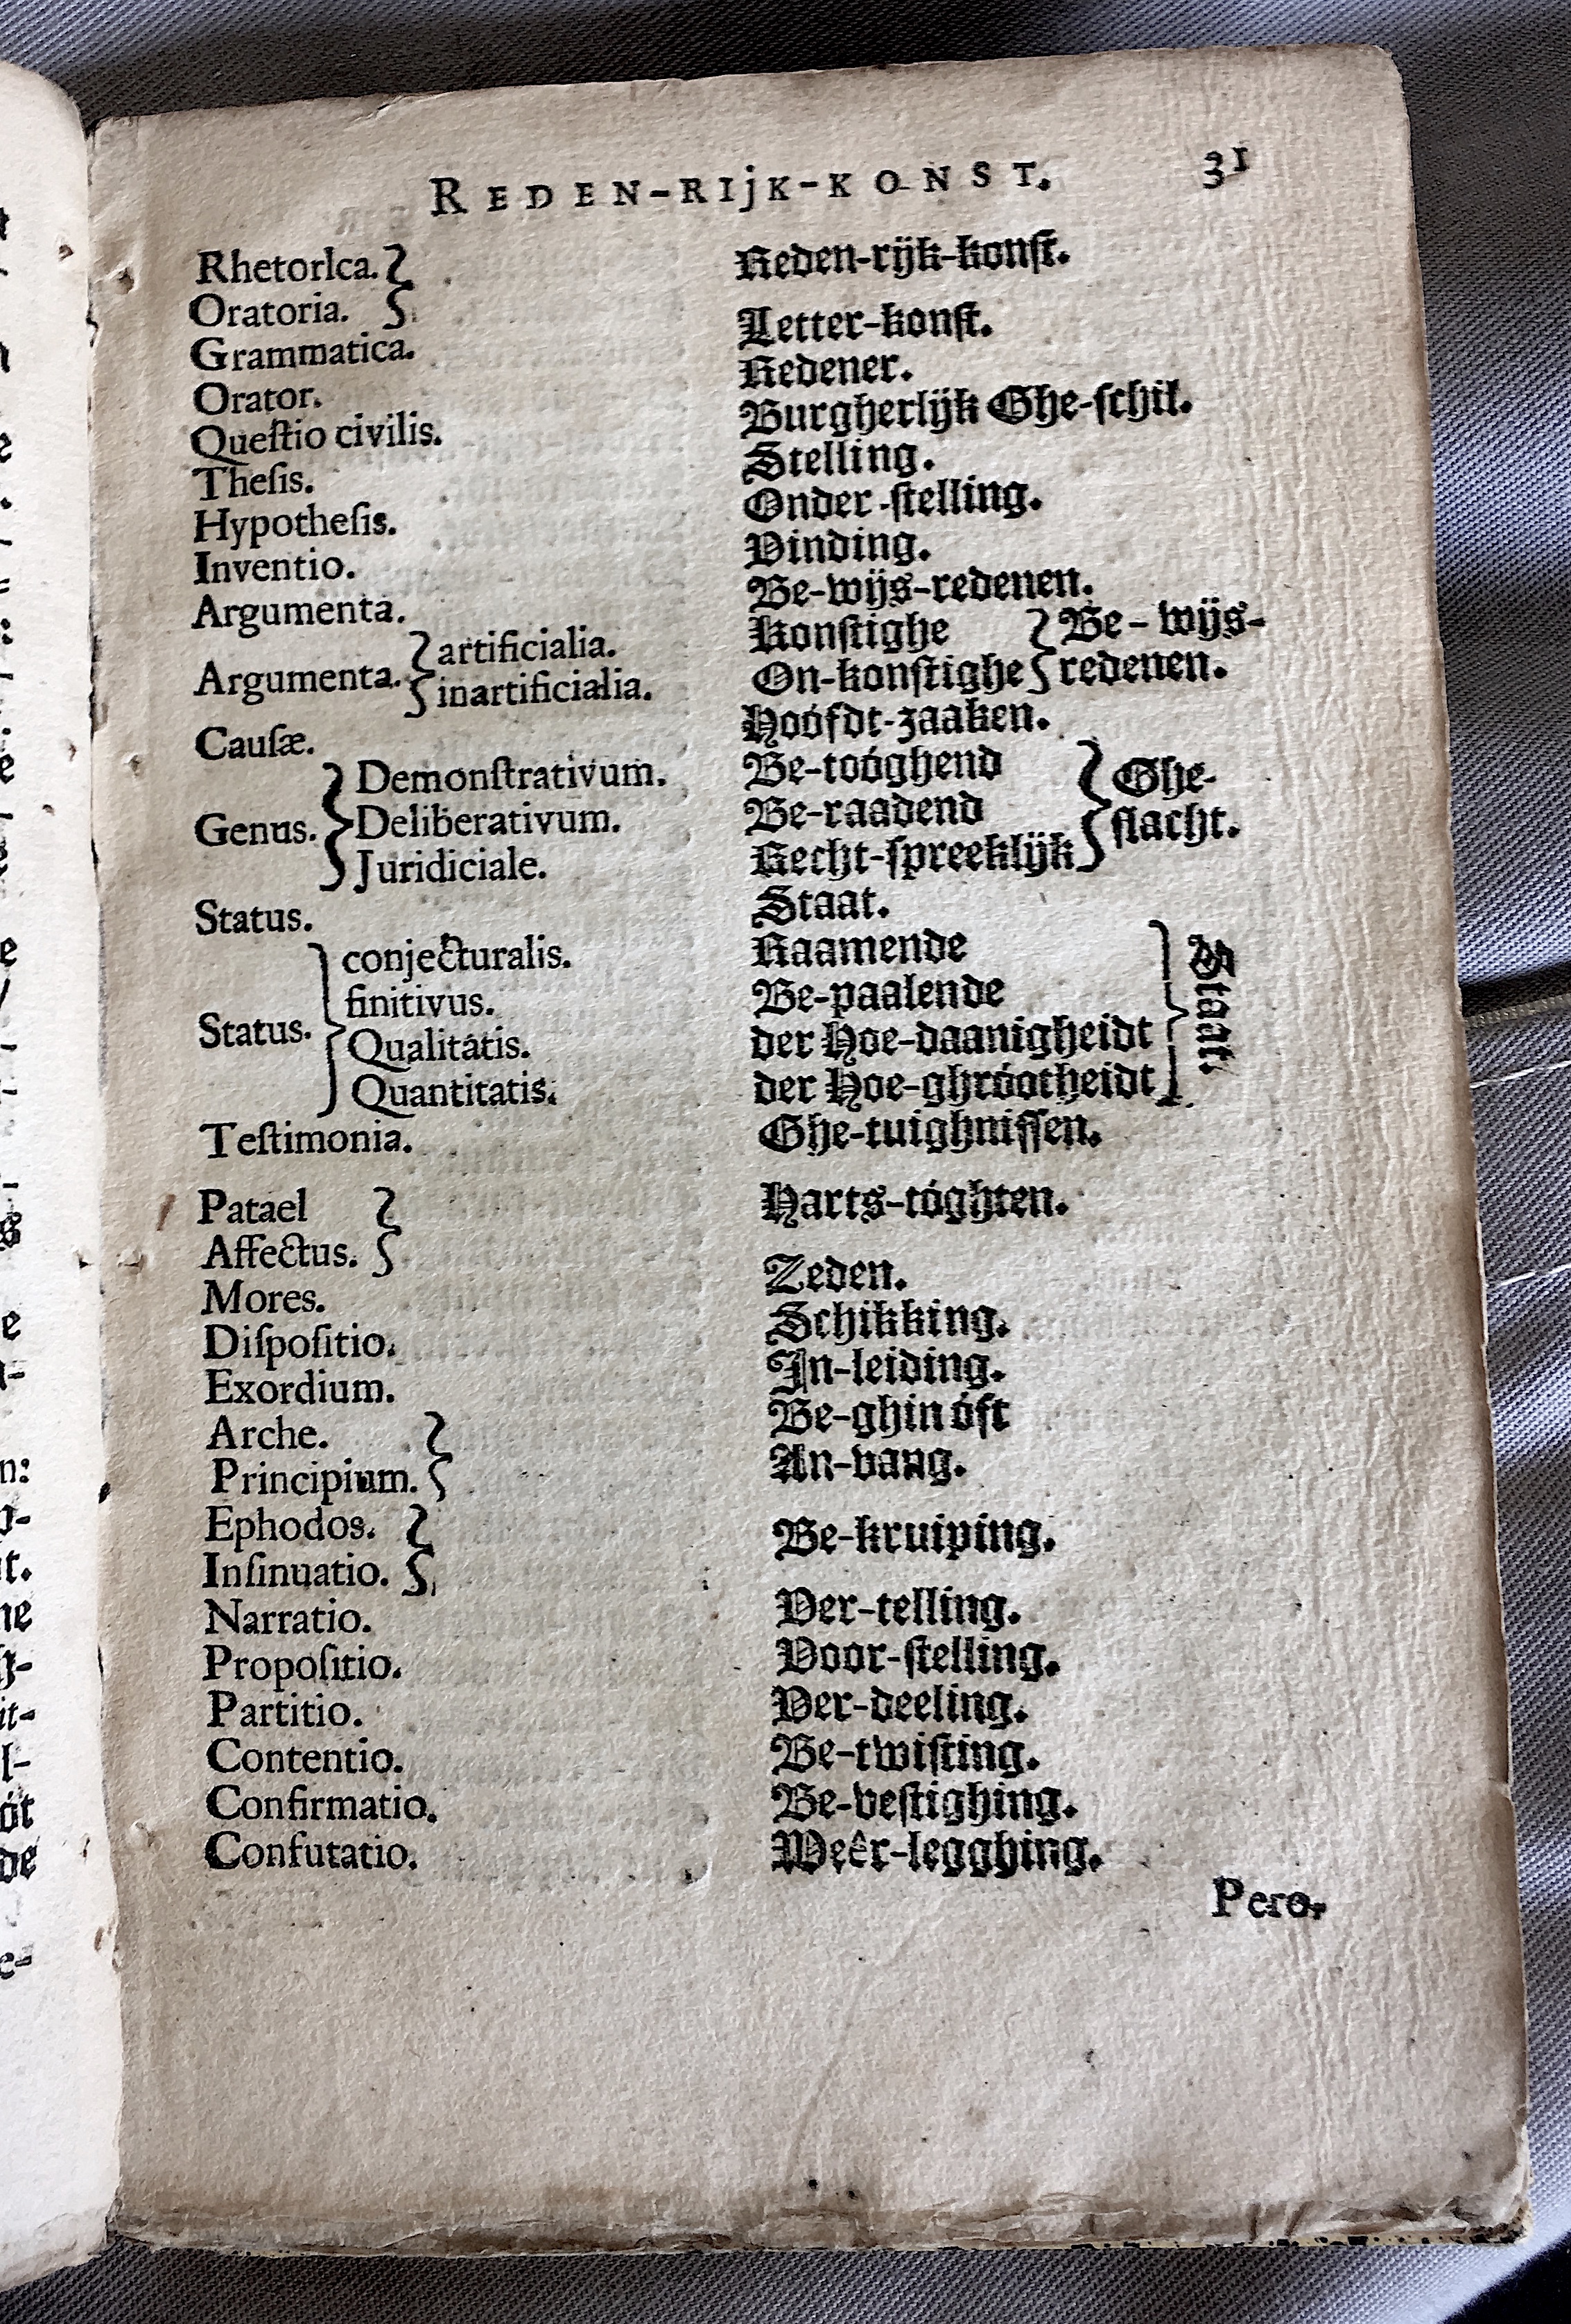 REDEN-RIjK-KONST. 31
Rhetorica. } Reden-rijk-konst.
Oratoria. }
Grammatica. Letter-konst.
Orator. Redener.
Queſtio civilis. Burgherlijk Ghe-ſchil.
Theſis. Stelling.
Hypotheſis. Onder-ſtelling.
Inventio. Vinding.
Argumenta. Be-wijs-redenen.
Argumenta. } artificialia. Konſtighe } Be-wijs-
inartificialia. On-konſtighe } redenen.
Cauſæ. Hoófdt-zaaken.
Genus. } Demonſtrativum. Be-toóghend } Ghe-
Deliberativum. Be-raadend } ſlacht.
Juridiciale. Recht-ſpreeklijk }
Status. Staat.
Status. } conjecturalis. Raamende } Staat.
finitivus. Be-paalende
Qualitátis. der Hoe-daanigheidt
Quantitatis. der Hoe-ghróotheidt
Teſtimonia. Ghe-tuighniſſen.
Patael } Harts-tóghten.
Affectus. }
Mores. Zeden.
Diſpoſitio. Schikking.
Exordium. In-leiding.
Arche. } Be-ghin óft
Principium. } An-vang.
Ephodos. } Be-kruiping.
Inſinuatio. }
Narratio. Ver-telling.
Propoſitio. Voor-ſtelling.
Partitio. Ver-deeling.
Contentio. Be-twiſting.
Confirmatio. Be-veſtighing.
Confutatio. Weêr-legghing.
Pero-